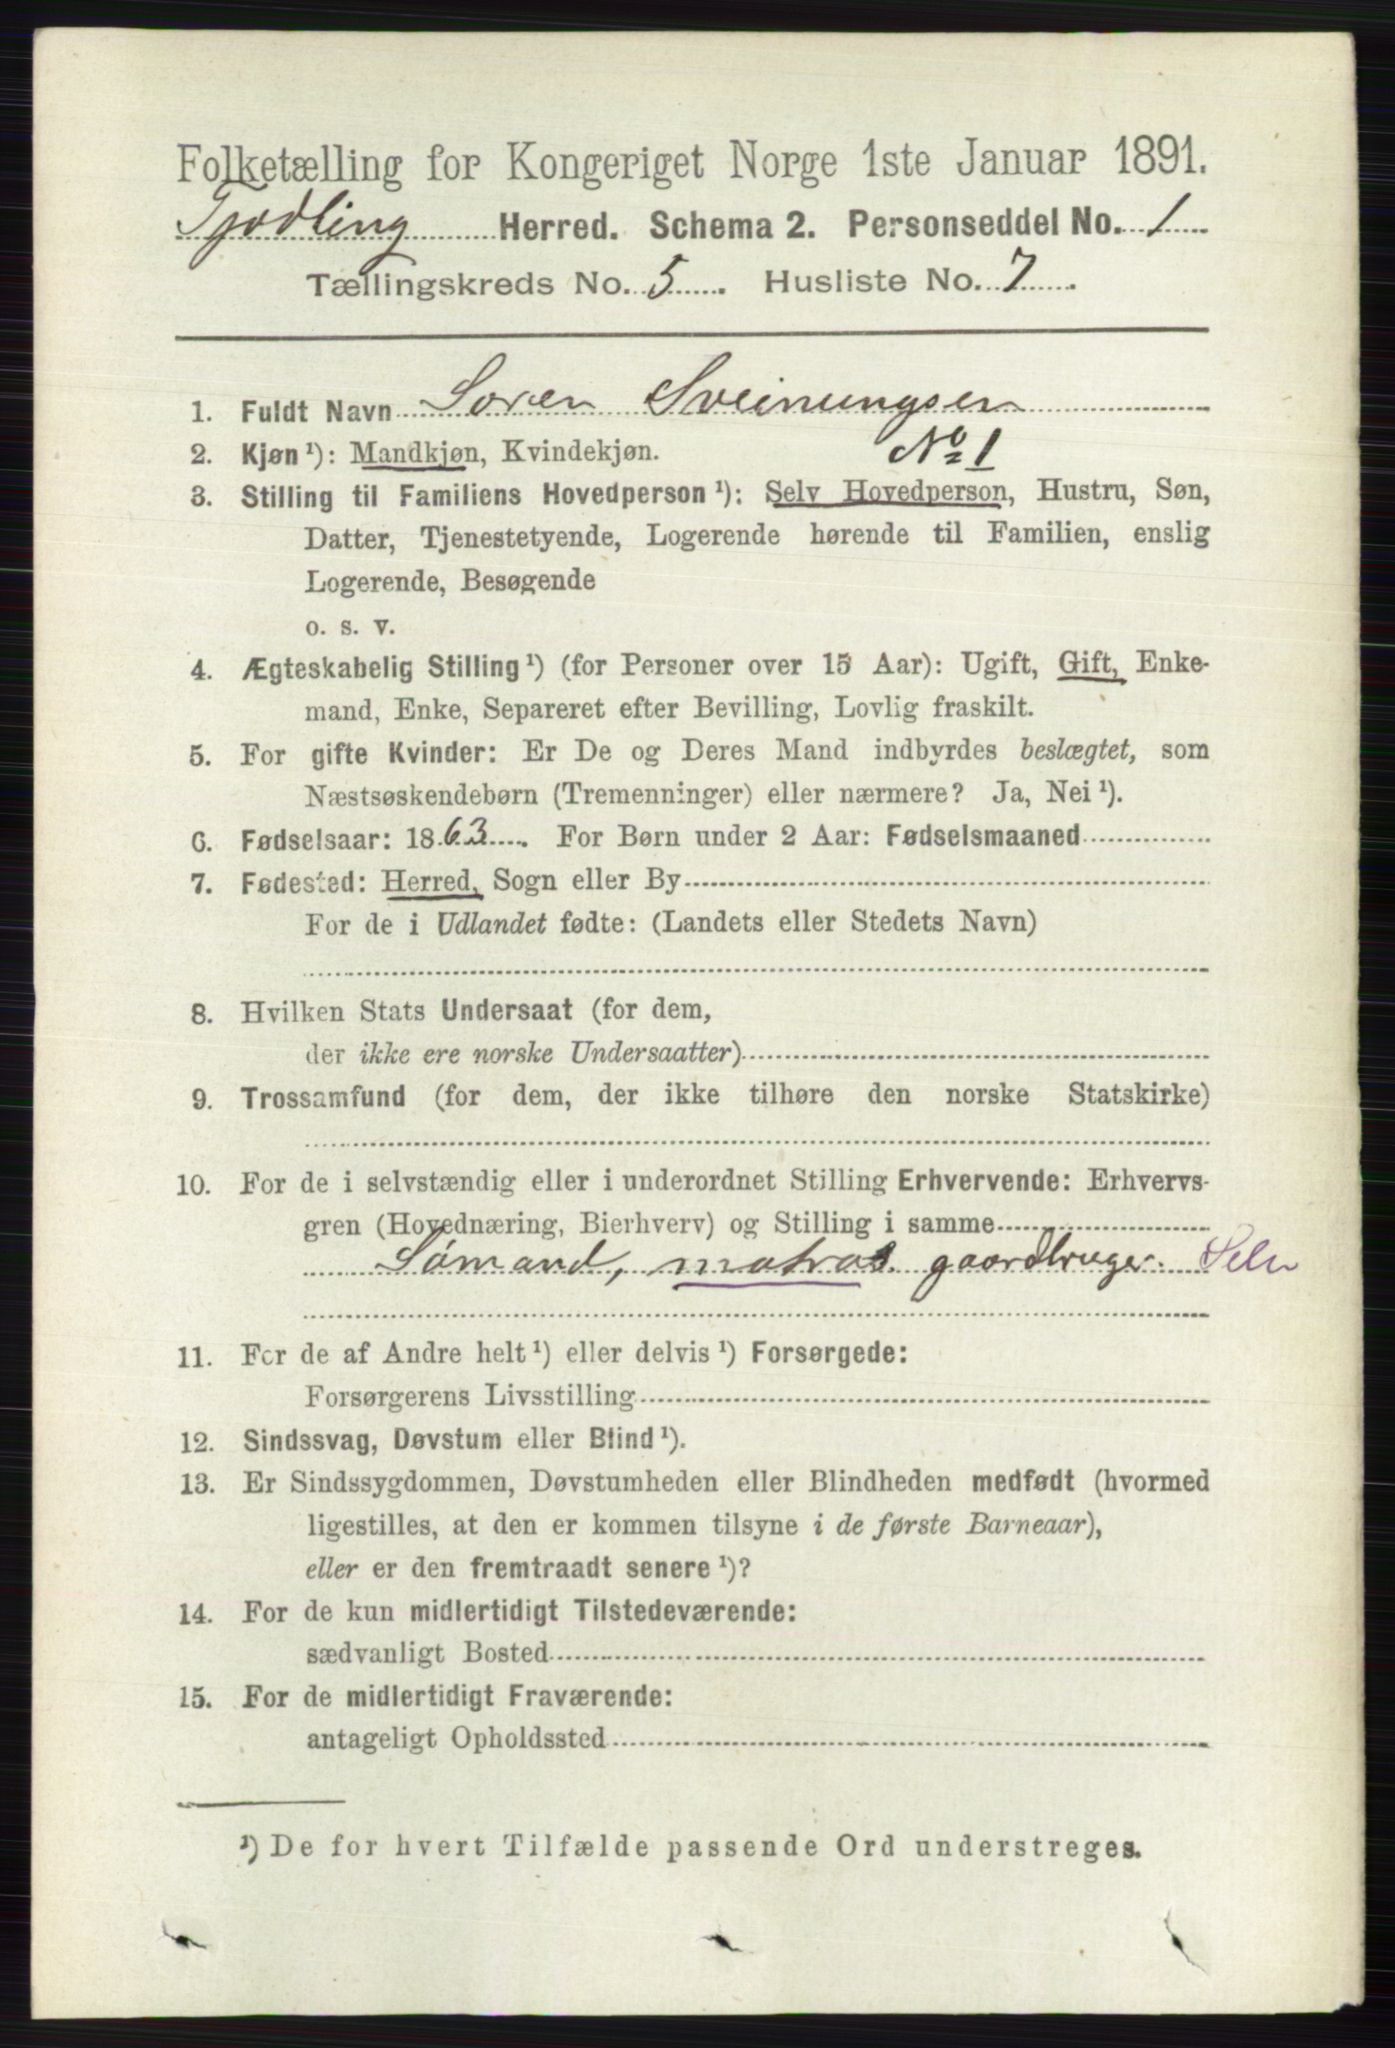 Folketælling for Kongeriget Norge 1ste Januar 1891.
Tjødling Herred. Schema 2. Personseddel No. 1
Tællingskreds No. 5. Husliste No. 7.
1. Fuldt Navn Soren Sveinungsen
2. Kjøn ¹): Mandkjøn, Kvindekjøn. No 1
3. Stilling til Familiens Hovedperson ¹): Selv Hovedperson, Hustru, Søn,
Datter, Tjenestetyende, Logerende hørende til Familien, enslig
Logerende, Besøgende
o. s. v.
4. Ægteskabelig Stilling ¹) (for Personer over 15 Aar): Ugift, Gift, Enke-
mand, Enke, Separeret efter Bevilling, Lovlig fraskilt.
5. For gifte Kvinder: Er De og Deres Mand indbyrdes beslægtet, som
Næstsøskendebørn (Tremenninger) eller nærmere? Ja, Nei ¹).
6. Fødselsaar: 1863. For Børn under 2 Aar: Fødselsmaaned
7. Fødested: Herred, Sogn eller By
For de i Udlandet fødte: (Landets eller Stedets Navn)
8. Hvilken Stats Undersaat (for dem,
der ikke ere norske Undersaatter)
9. Trossamfund (for dem, der ikke tilhøre den norske Statskirke)
10. For de i selvstændig eller i underordnet Stilling Erhvervende: Erhvervs-
gren (Hovednæring, Bierhverv) og Stilling i samme
Sømand, matros. gaardbruger. Selv
11. For de af Andre helt ¹) eller delvis ¹) Forsørgede:
Forsørgerens Livsstilling
12. Sindssvag, Døvstum eller Blind ¹).
13. Er Sindssygdommen, Døvstumheden eller Blindheden medfødt (hvormed
ligestilles, at den er kommen tilsyne i de første Barneaar),
eller er den fremtraadt senere ¹)?
14. For de kun midlertidigt Tilstedeværende:
sædvanligt Bosted
15. For de midlertidigt Fraværende:
antageligt Opholdssted
¹) De for hvert Tilfælde passende Ord understreges.